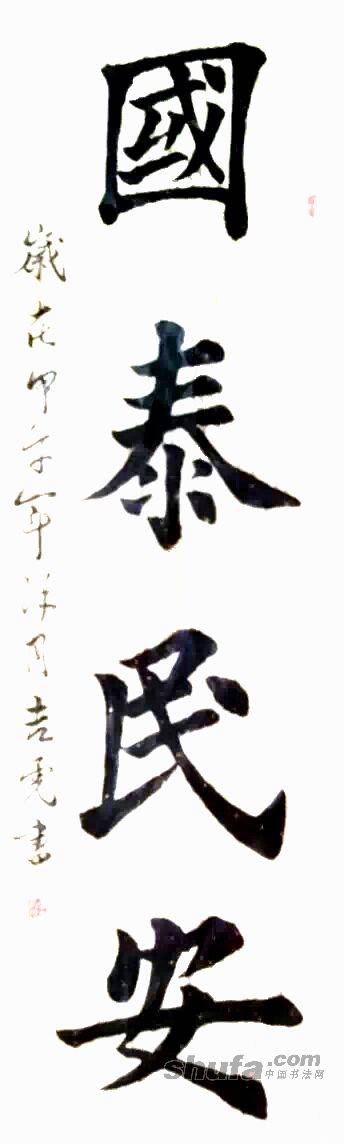 國泰民安
歲在甲午年洋月吉亮書
shufa.com
中国书法网